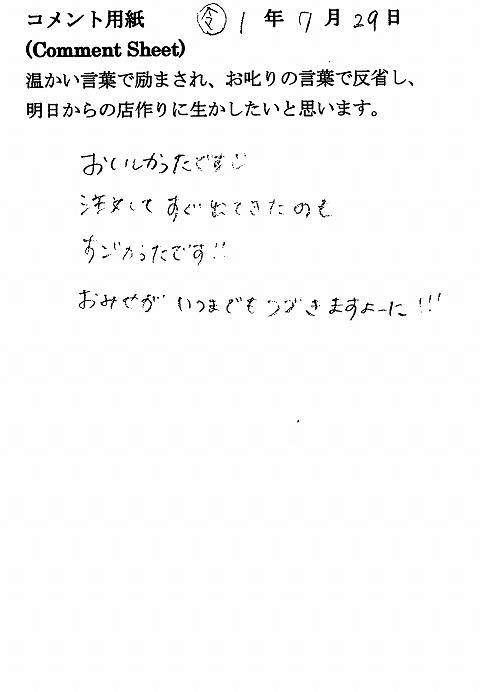 コメント用紙 令 1 年 7 月 29 日
(Comment Sheet)
温かい言葉で励まされ、お叱りの言葉で反省し、
明日からの店作りに生かしたいと思います。
おいしかったです
注文してすぐ出てきたのも
すごかったです!!
おみせがいつまでもつづきますよーに!!!